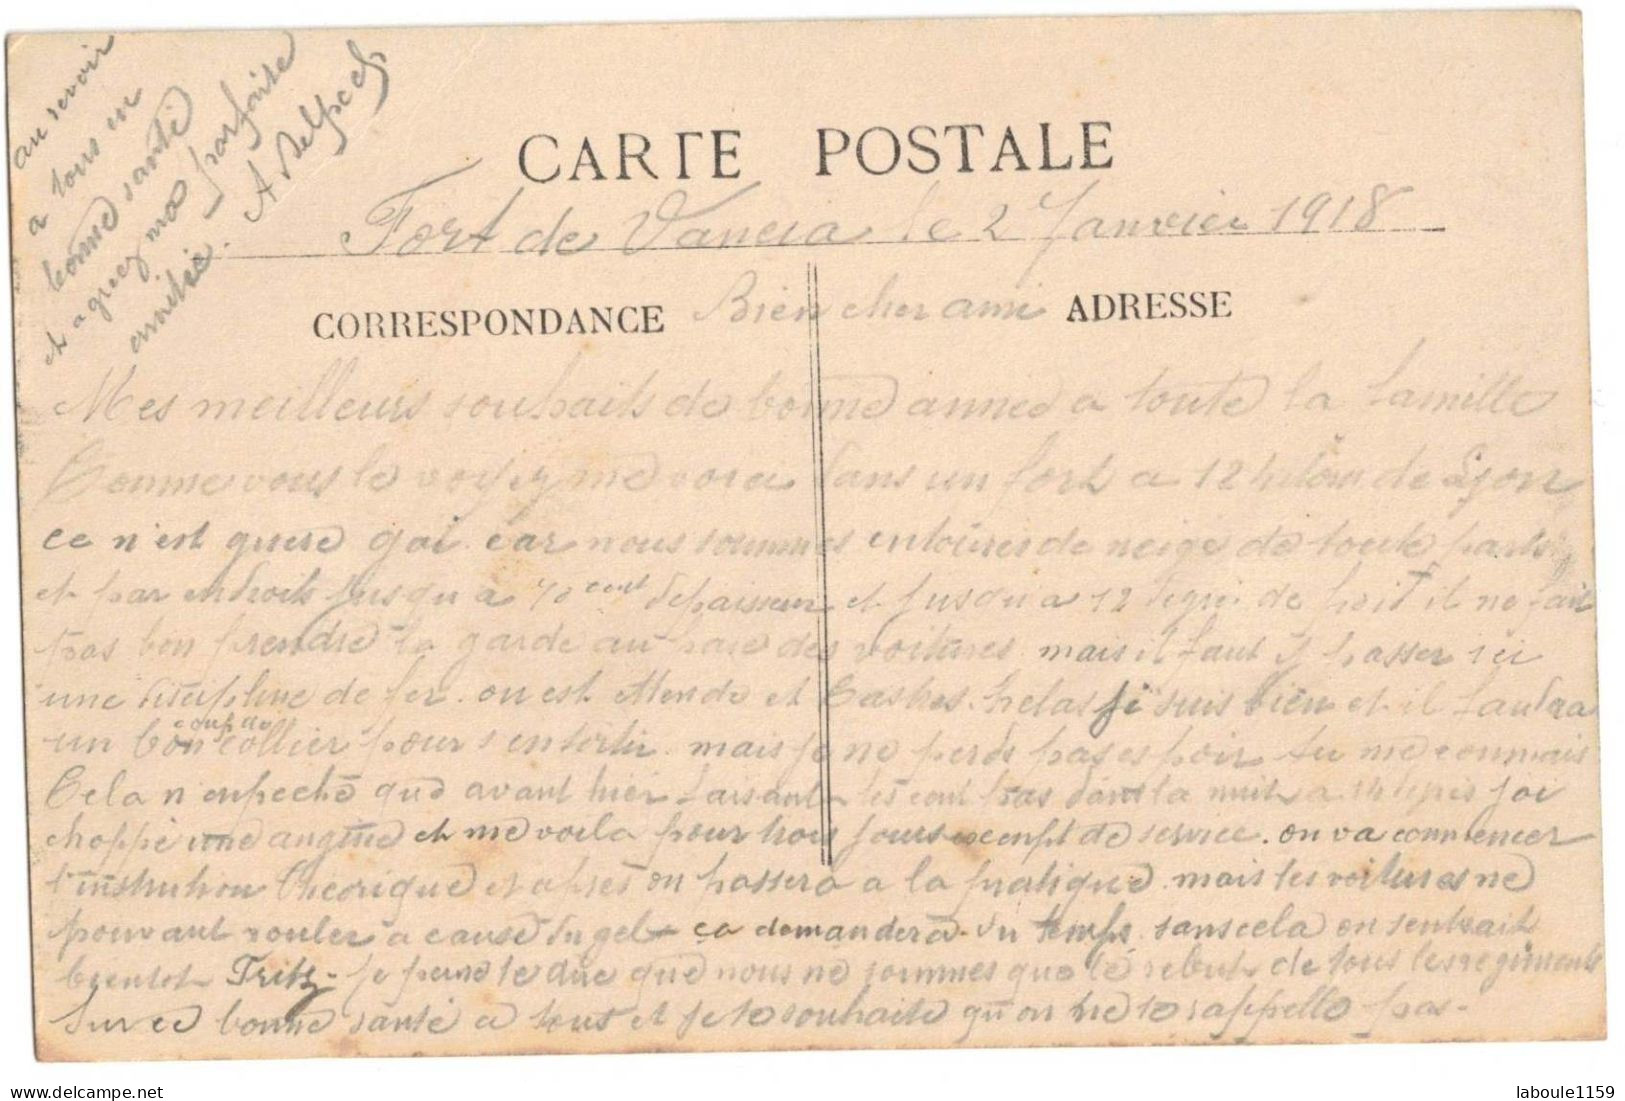 au revoir
a tous en
bonne santé
et agreez ma parfaite
amitié. A Delpech
CARTE POSTALE
Fort de Vancia le 2 Janvier 1918
CORRESPONDANCE Bien cher ami ADRESSE
Mes meilleurs souhaits de bonne anned a toute la famille
Comme vous le voyez me voici dans un fort a 12 kilom de Lyon
ce n'est guere gai car nous sommes entourés de neige de toute parts
et par endroits jusqu a 70 cent d'epaisseur et jusqu a 12 degré de froid il ne fait
pas bon prendre la garde au parc des voitures mais il faut y passer ici
une discipline de fer. on est et Casbes. helas j'i suis bien et il faudra
un bon coup de collier pour s'en sortir mais je ne perds pas espoir tu me connais
Cela n'enpeche que avant hier faisant les cent pas dans la nuit a j'ai
choppé une angine et me voila pour trois jours exempt de service. on va commencer
l'instruction théorique et apres on passera a la pratique mais les voitures ne
pouvant rouler a cause du gel ça demandera du temps sans cela on sentirait
bientot Fritz - je pense te dire que nous ne sommes que le rebut de tous les regiments
Sur ce bonne santé a tous et je te souhaite qu'on ne te rappelle pas -
laboule1159